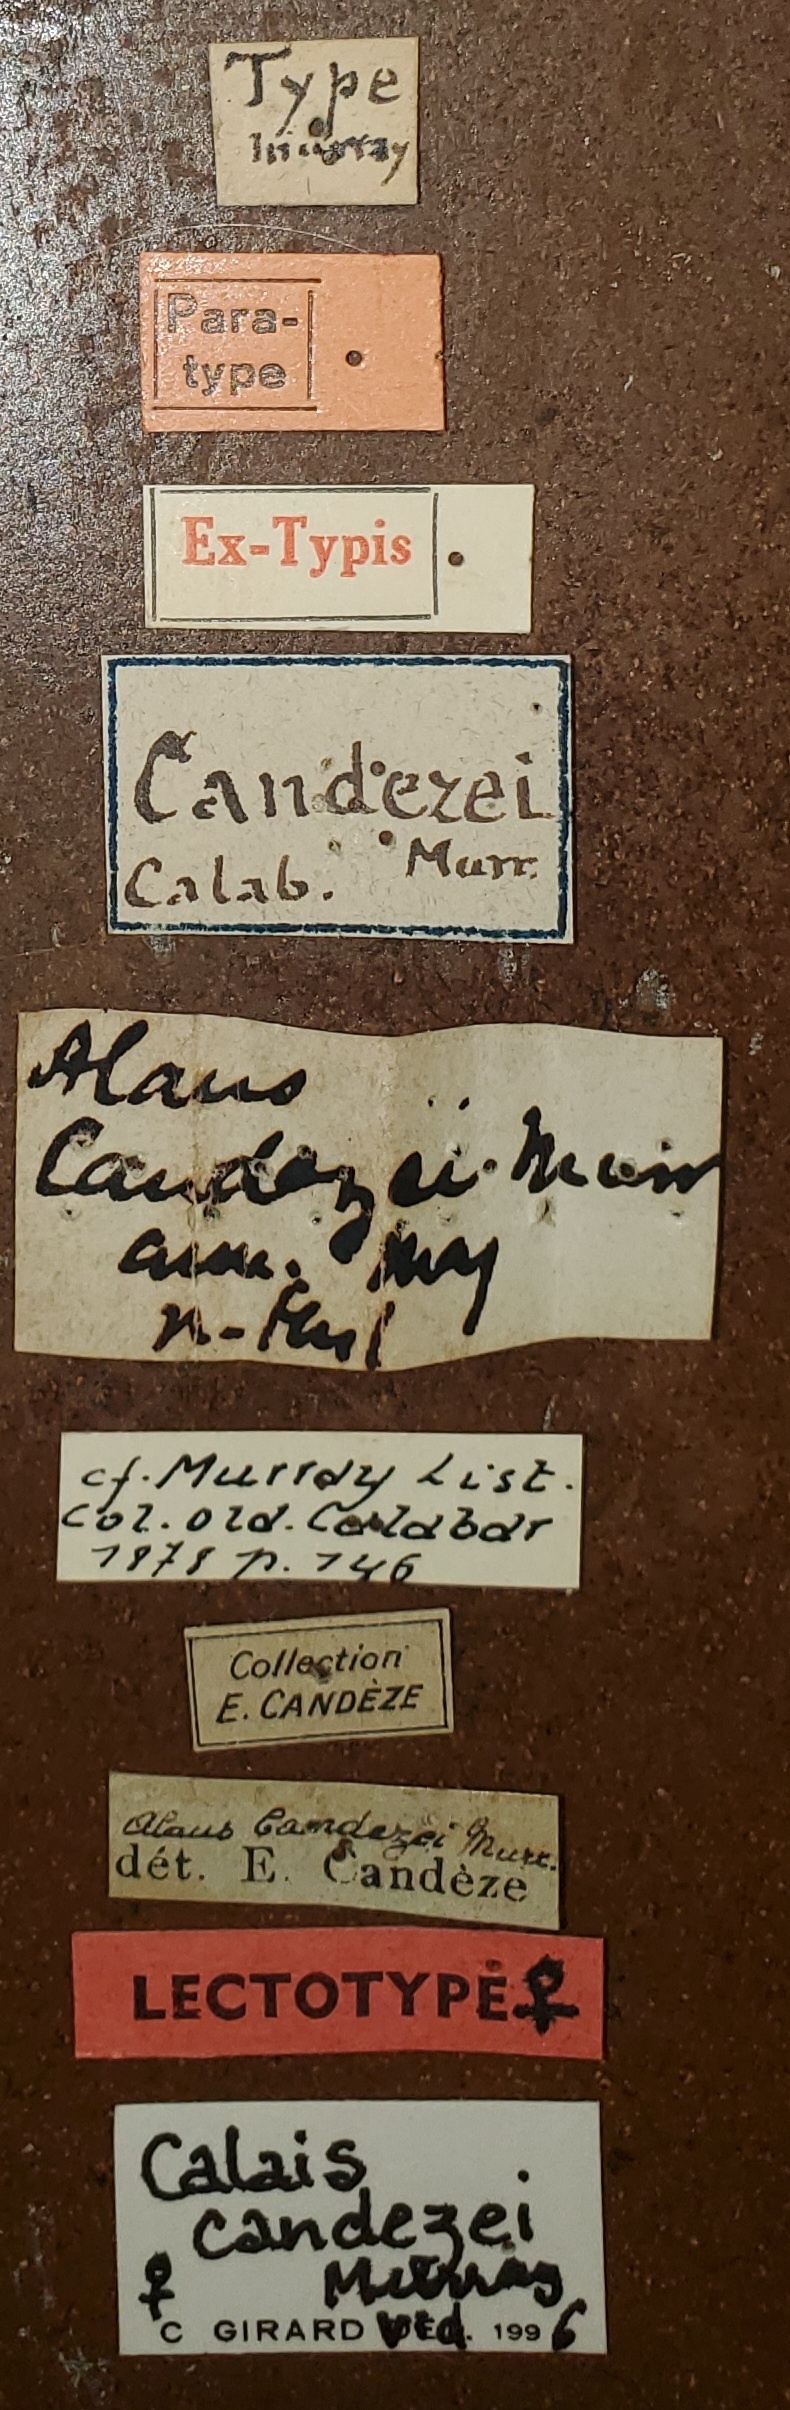 Type
Murray
Para-
type
Ex-Typis
Candezei
Murr.
Calab.
Alaus
Candezei Murr
ann.
cf. Murray List.
Col. Old. Calabar
1878 p. 146
Collection
E. CANDÈZE
Alaus Candezei Murr.
dét. E. Candèze
LECTOTYPE ♀
Calais
candezei
♀ Murray
C GIRARD vid. 1996